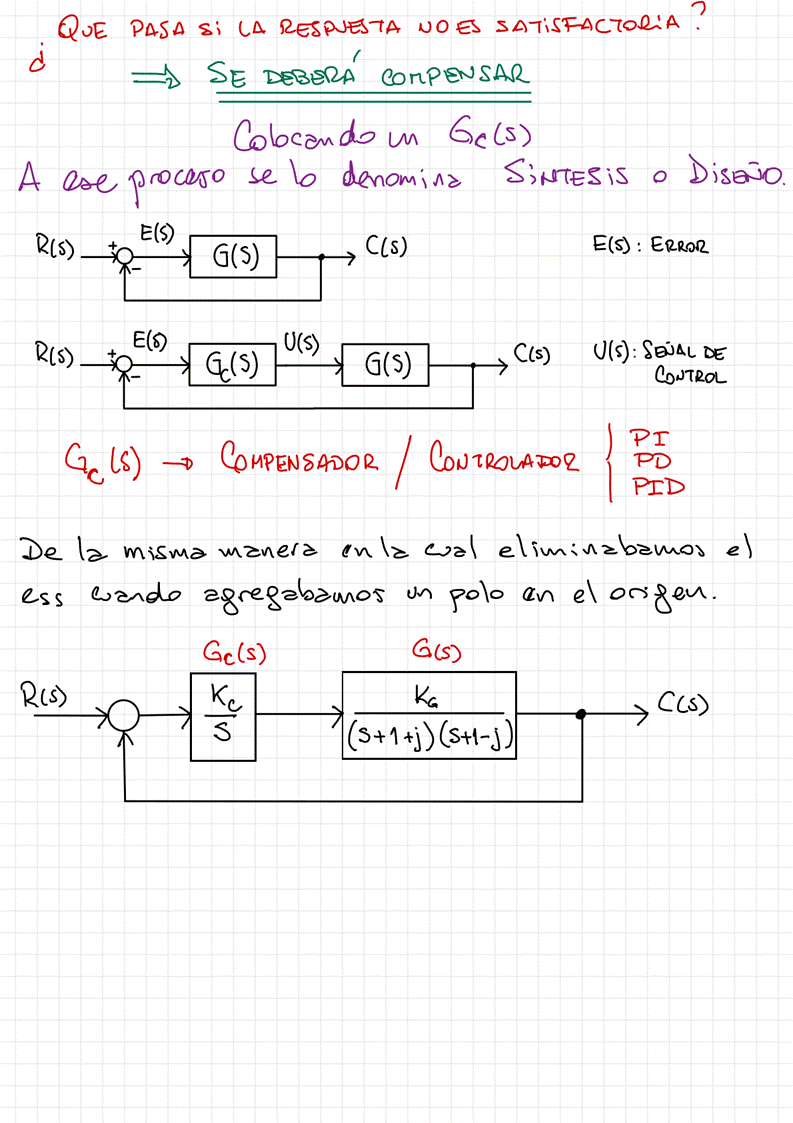 ¿ QUE PASA Si LA RESPUESTA NO ES SATiSFACTORiA ?
⇒ SE DEBERÁ COMPENSAR
Colocando un Gc(s)
A ese proceso se lo denomina SiNTESiS o DiSEÑO.
R(s) + − E(s) G(s) C(s) E(s): ERROR
R(s) + − E(s) Gc(s) U(s) G(s) C(s) U(s): SEÑAL DE
CONTROL
Gc(s) → COMPENSADOR / CONTROLADOR { PI
PD
PID
De la misma manera en la cual eliminabamos el
ess cuando agregabamos un polo en el origen.
Gc(s) G(s)
R(s) Kc/S KG/(S+1+j)(S+1-j) C(s)